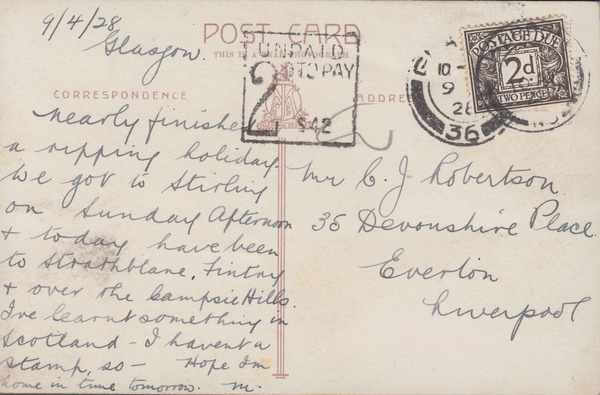 9/4/28
Glasgow.
POST CARD
THIS IS A REAL PHOTOGRAPH
CORRESPONDENCE
ADDRESS
UNPAID
2D TO PAY
S42
POSTAGE DUE
2d
TWO PENCE
10
9
28
36
nearly finished
a ripping holiday.
We got to Stirling
on Sunday Afternoon
+ today have been
to Strathblane, Fintry
+ over the Campsie Hills.
I've learnt something in
Scotland - I haven't a
stamp, so - Hope I'm
home in time tomorrow. M.
Mr C. J Robertson
35 Devonshire Place
Everton
Liverpool